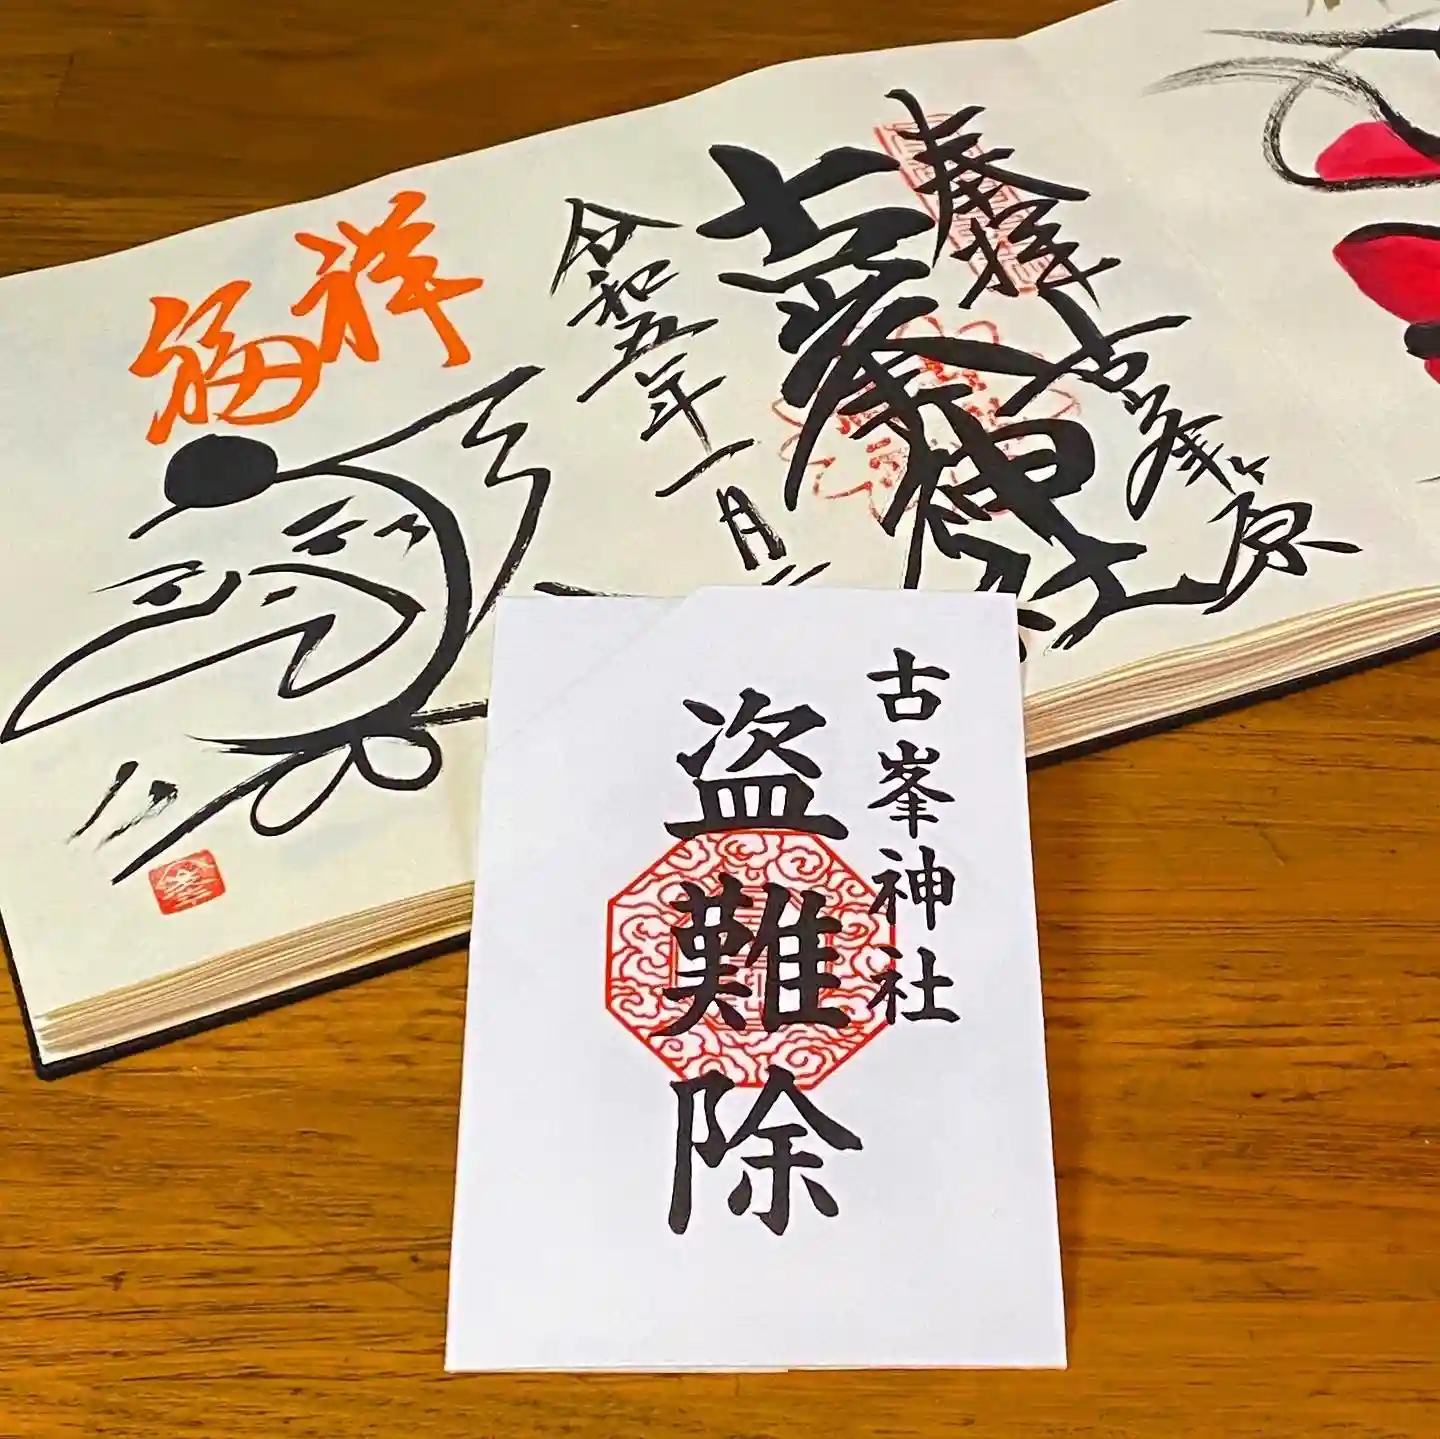 奉拝
古峯ヶ原
古峯神社
令和五年一月
祥福
古峯神社
盗難除